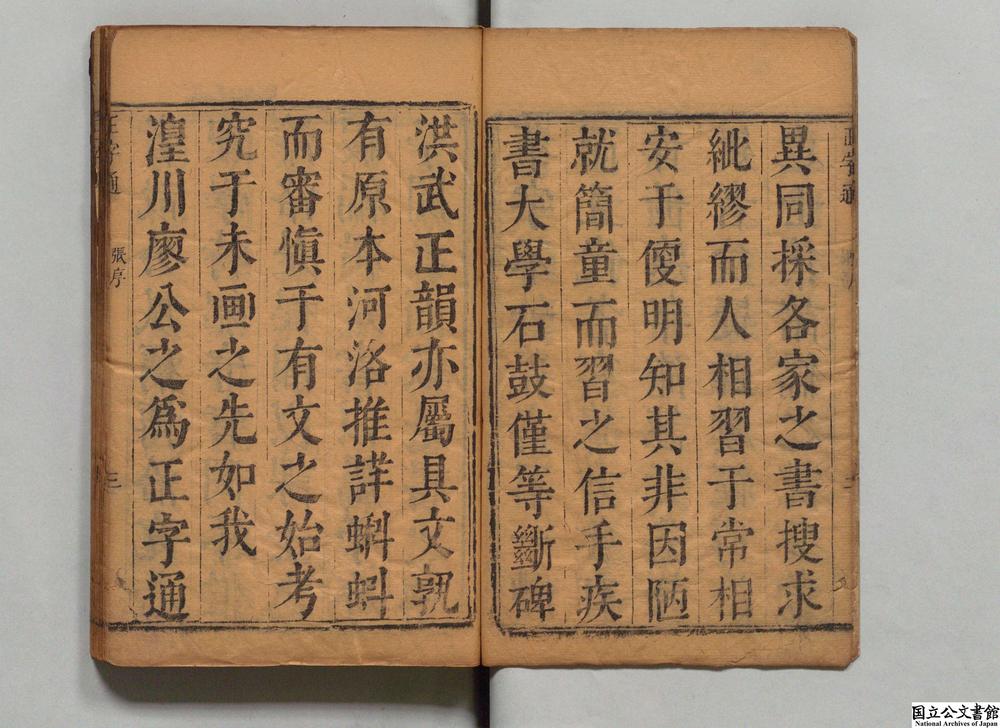 異同採各家之書搜求
紕繆而人相習于常相
安于便明知其非因陋
就簡童而習之信手疾
書大學石鼓僅等斷碑
洪武正韻亦屬具文孰
有原本河洛推詳蝌蚪
而審愼于有文之始考
究于未画之先如我
湟川廖公之為正字通
正字通
張序
三
国立公文書館
National Archives of Japan